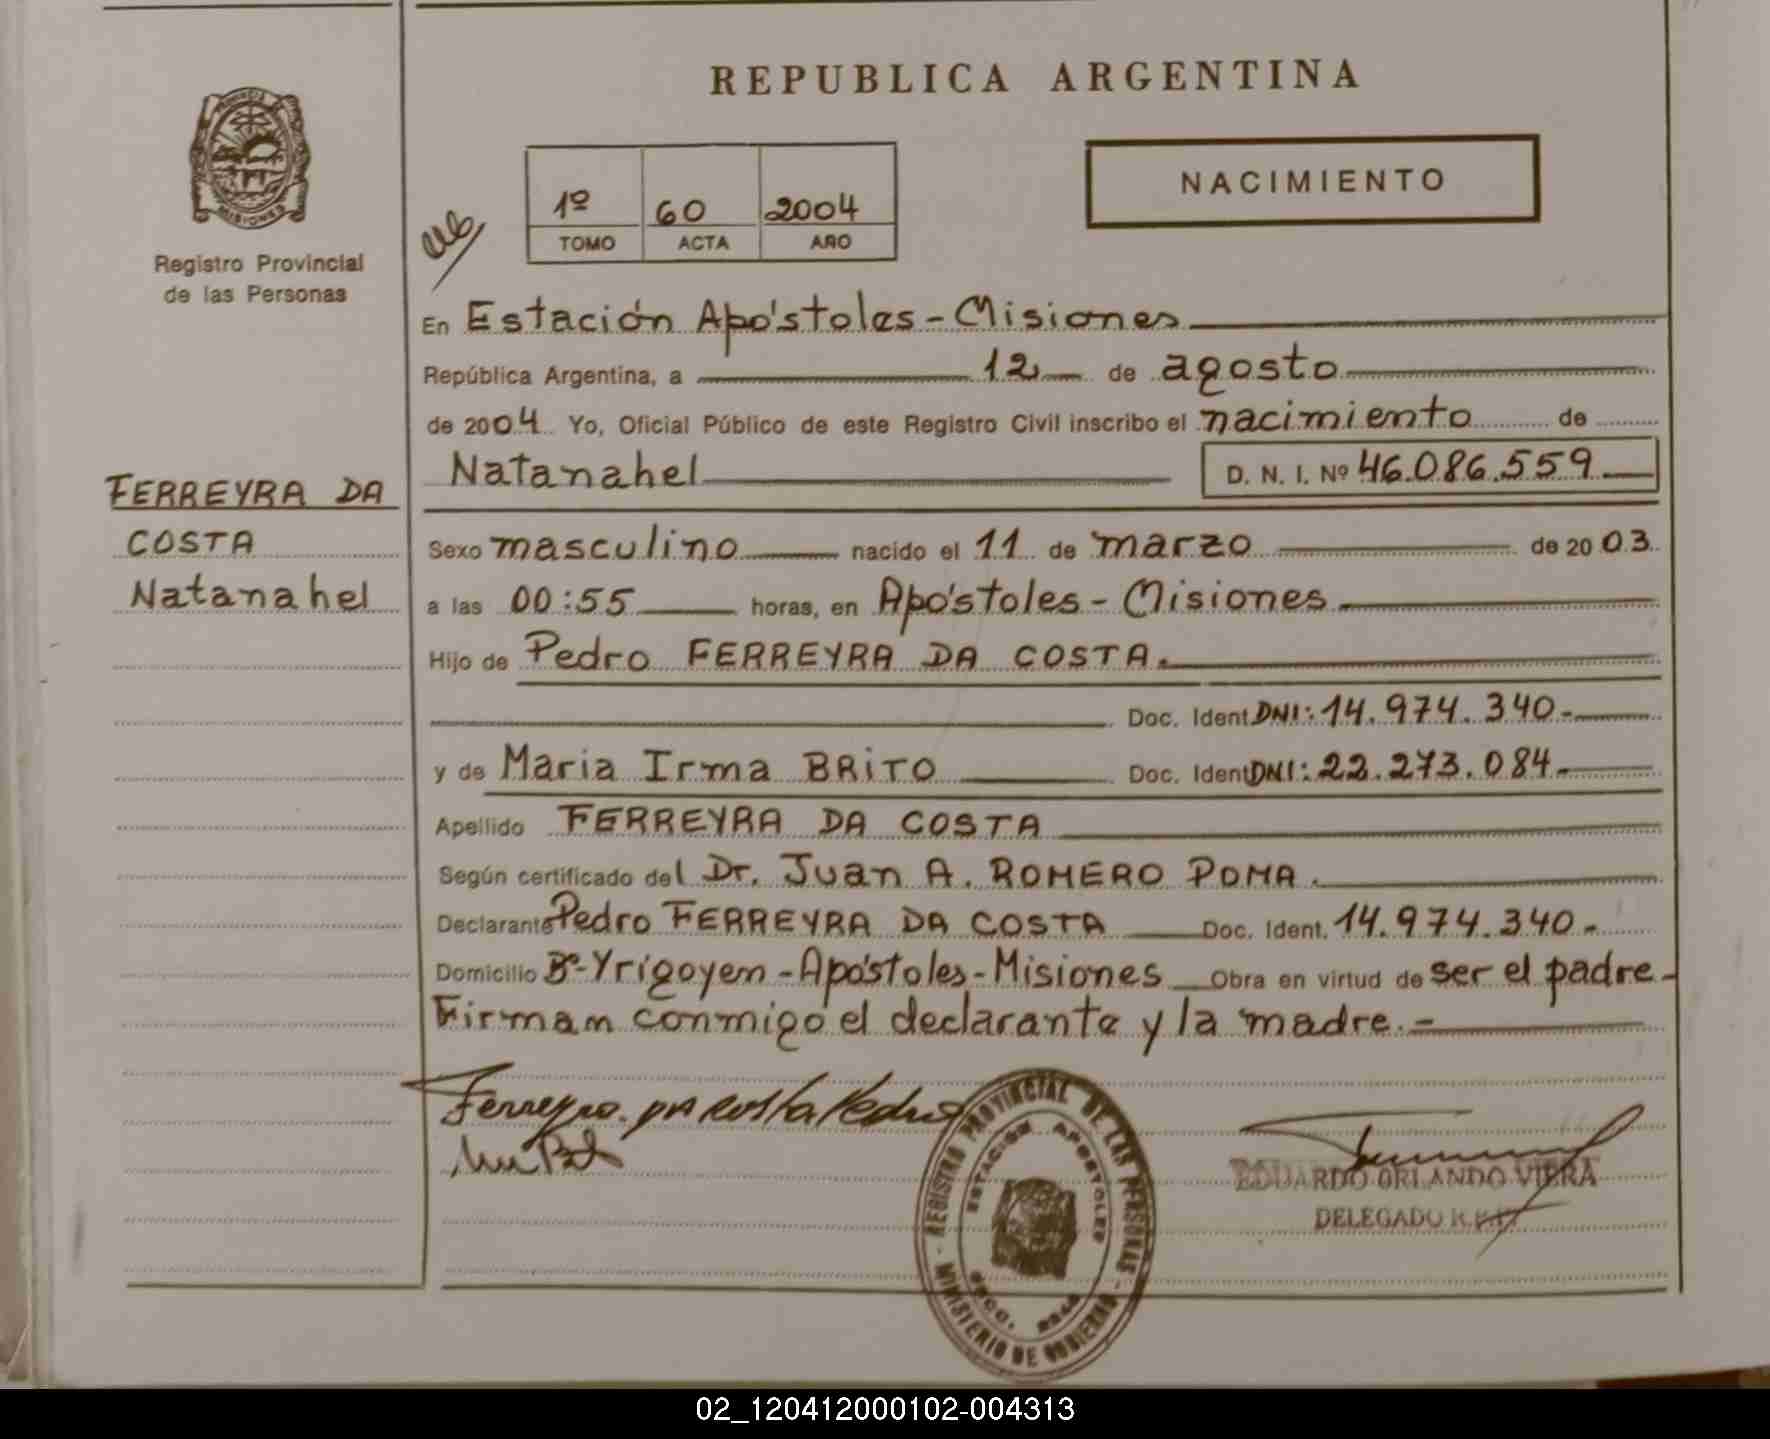 REPUBLICA ARGENTINA
NACIMIENTO
1º 60 2004
TOMO ACTA AÑO
Registro Provincial
de las Personas
MISIONES
FERREYRA DA
COSTA
Natanahel
En Estación Apóstoles - Misiones
República Argentina, a 12 de agosto
de 2004 Yo, Oficial Público de este Registro Civil inscribo el nacimiento de
Natanahel D. N. I. Nº 46.086.559
Sexo masculino nacido el 11 de marzo de 2003
a las 00:55 horas, en Apóstoles - Misiones
Hijo de Pedro FERREYRA DA COSTA.
Doc. Ident DNI: 14.974.340-
y de Maria Irma BRITO Doc. Ident DNI: 22.273.084-
Apellido FERREYRA DA COSTA
Según certificado del Dr. Juan A. ROMERO POMA.
Declarante Pedro FERREYRA DA COSTA Doc. Ident. 14.974.340-
Domicilio Bº-Yrigoyen - Apóstoles - Misiones Obra en virtud de ser el padre-
Firman conmigo el declarante y la madre.-
Ferreyra da Costa Pedro
REGISTRO PROVINCIAL DE LAS PERSONAS - MINISTERIO DE GOBIERNO -
ESTACION APOSTOLES
EDUARDO ORLANDO VIERA
DELEGADO
02_120412000102-004313